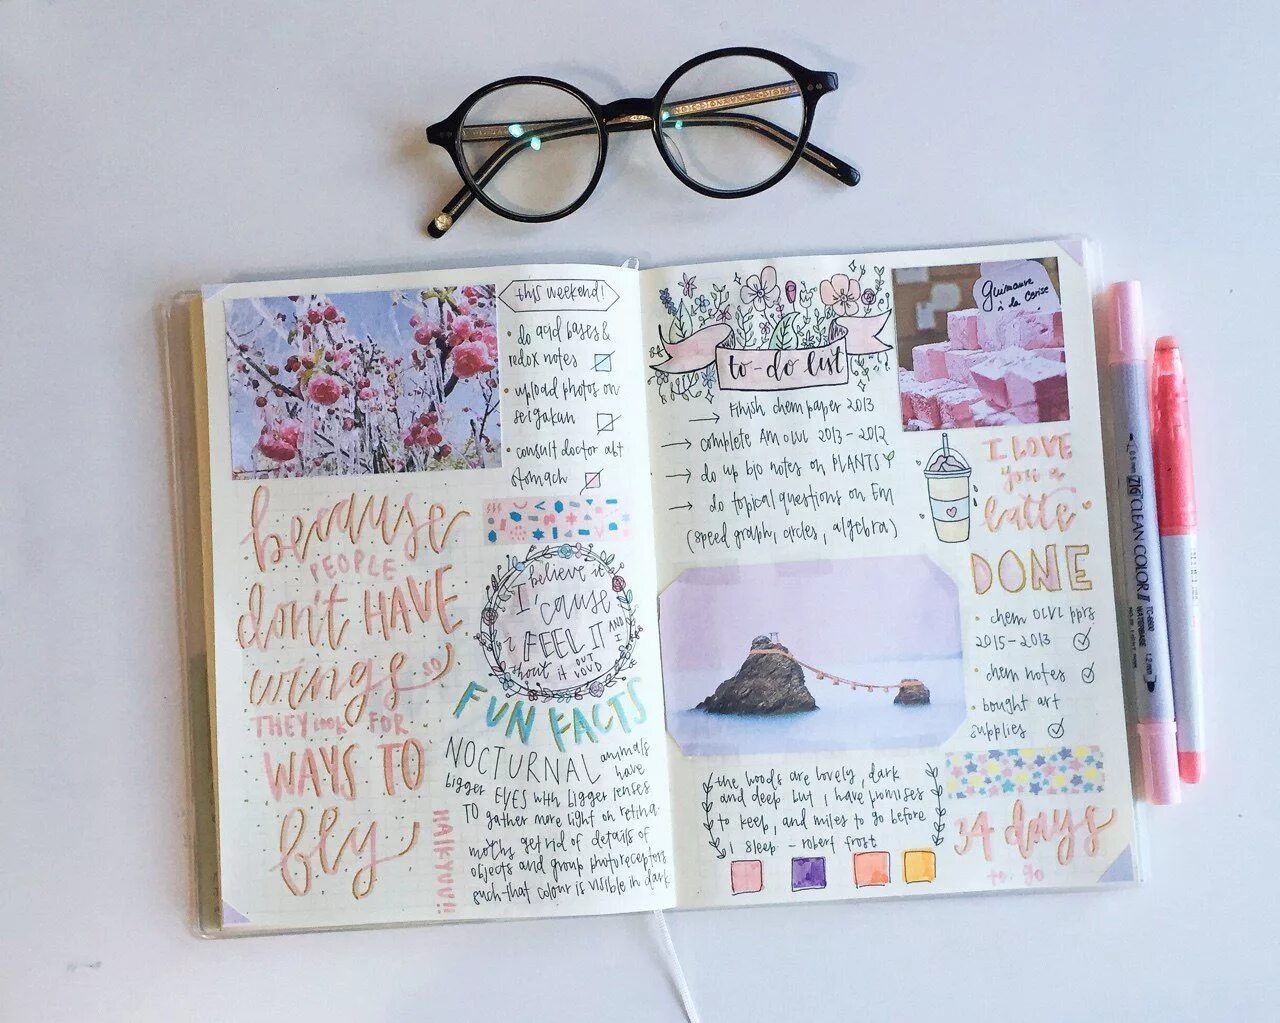 this weekend!
• do acid bases &
redox notes
• upload photos on
seigakan
• consult doctor abt
stomach
because
PEOPLE
don't HAVE
wings so
THEY look FOR
WAYS TO
fly
HAIKYUU!!
I believe it
'cause
I FEEL IT AND I
shout it OUT LOUD
FUN FACTS
NOCTURNAL animals have
bigger EYES with bigger lenses
TO gather more light on retina.
moths get rid of details of
objects and group photoreceptors
such that colour is visible in dark
to-do list
→ finish chem paper 2013
→ complete AM OLVL 2013-2012
→ do up bio notes on PLANTS
→ do topical questions on EM
(speed graph, circles, algebra)
guimauve
à la cerise
I LOVE
you a
latte
DONE
• chem OLVL pprs
2015-2013
• chem notes
• bought art
supplies
the woods are lovely, dark
and deep but I have promises
to keep, and miles to go before
I sleep - robert frost
34 days
to go
ZIG CLEAN COLOR II
TC-6600
WATERBASE
1.2mm
0.5mm